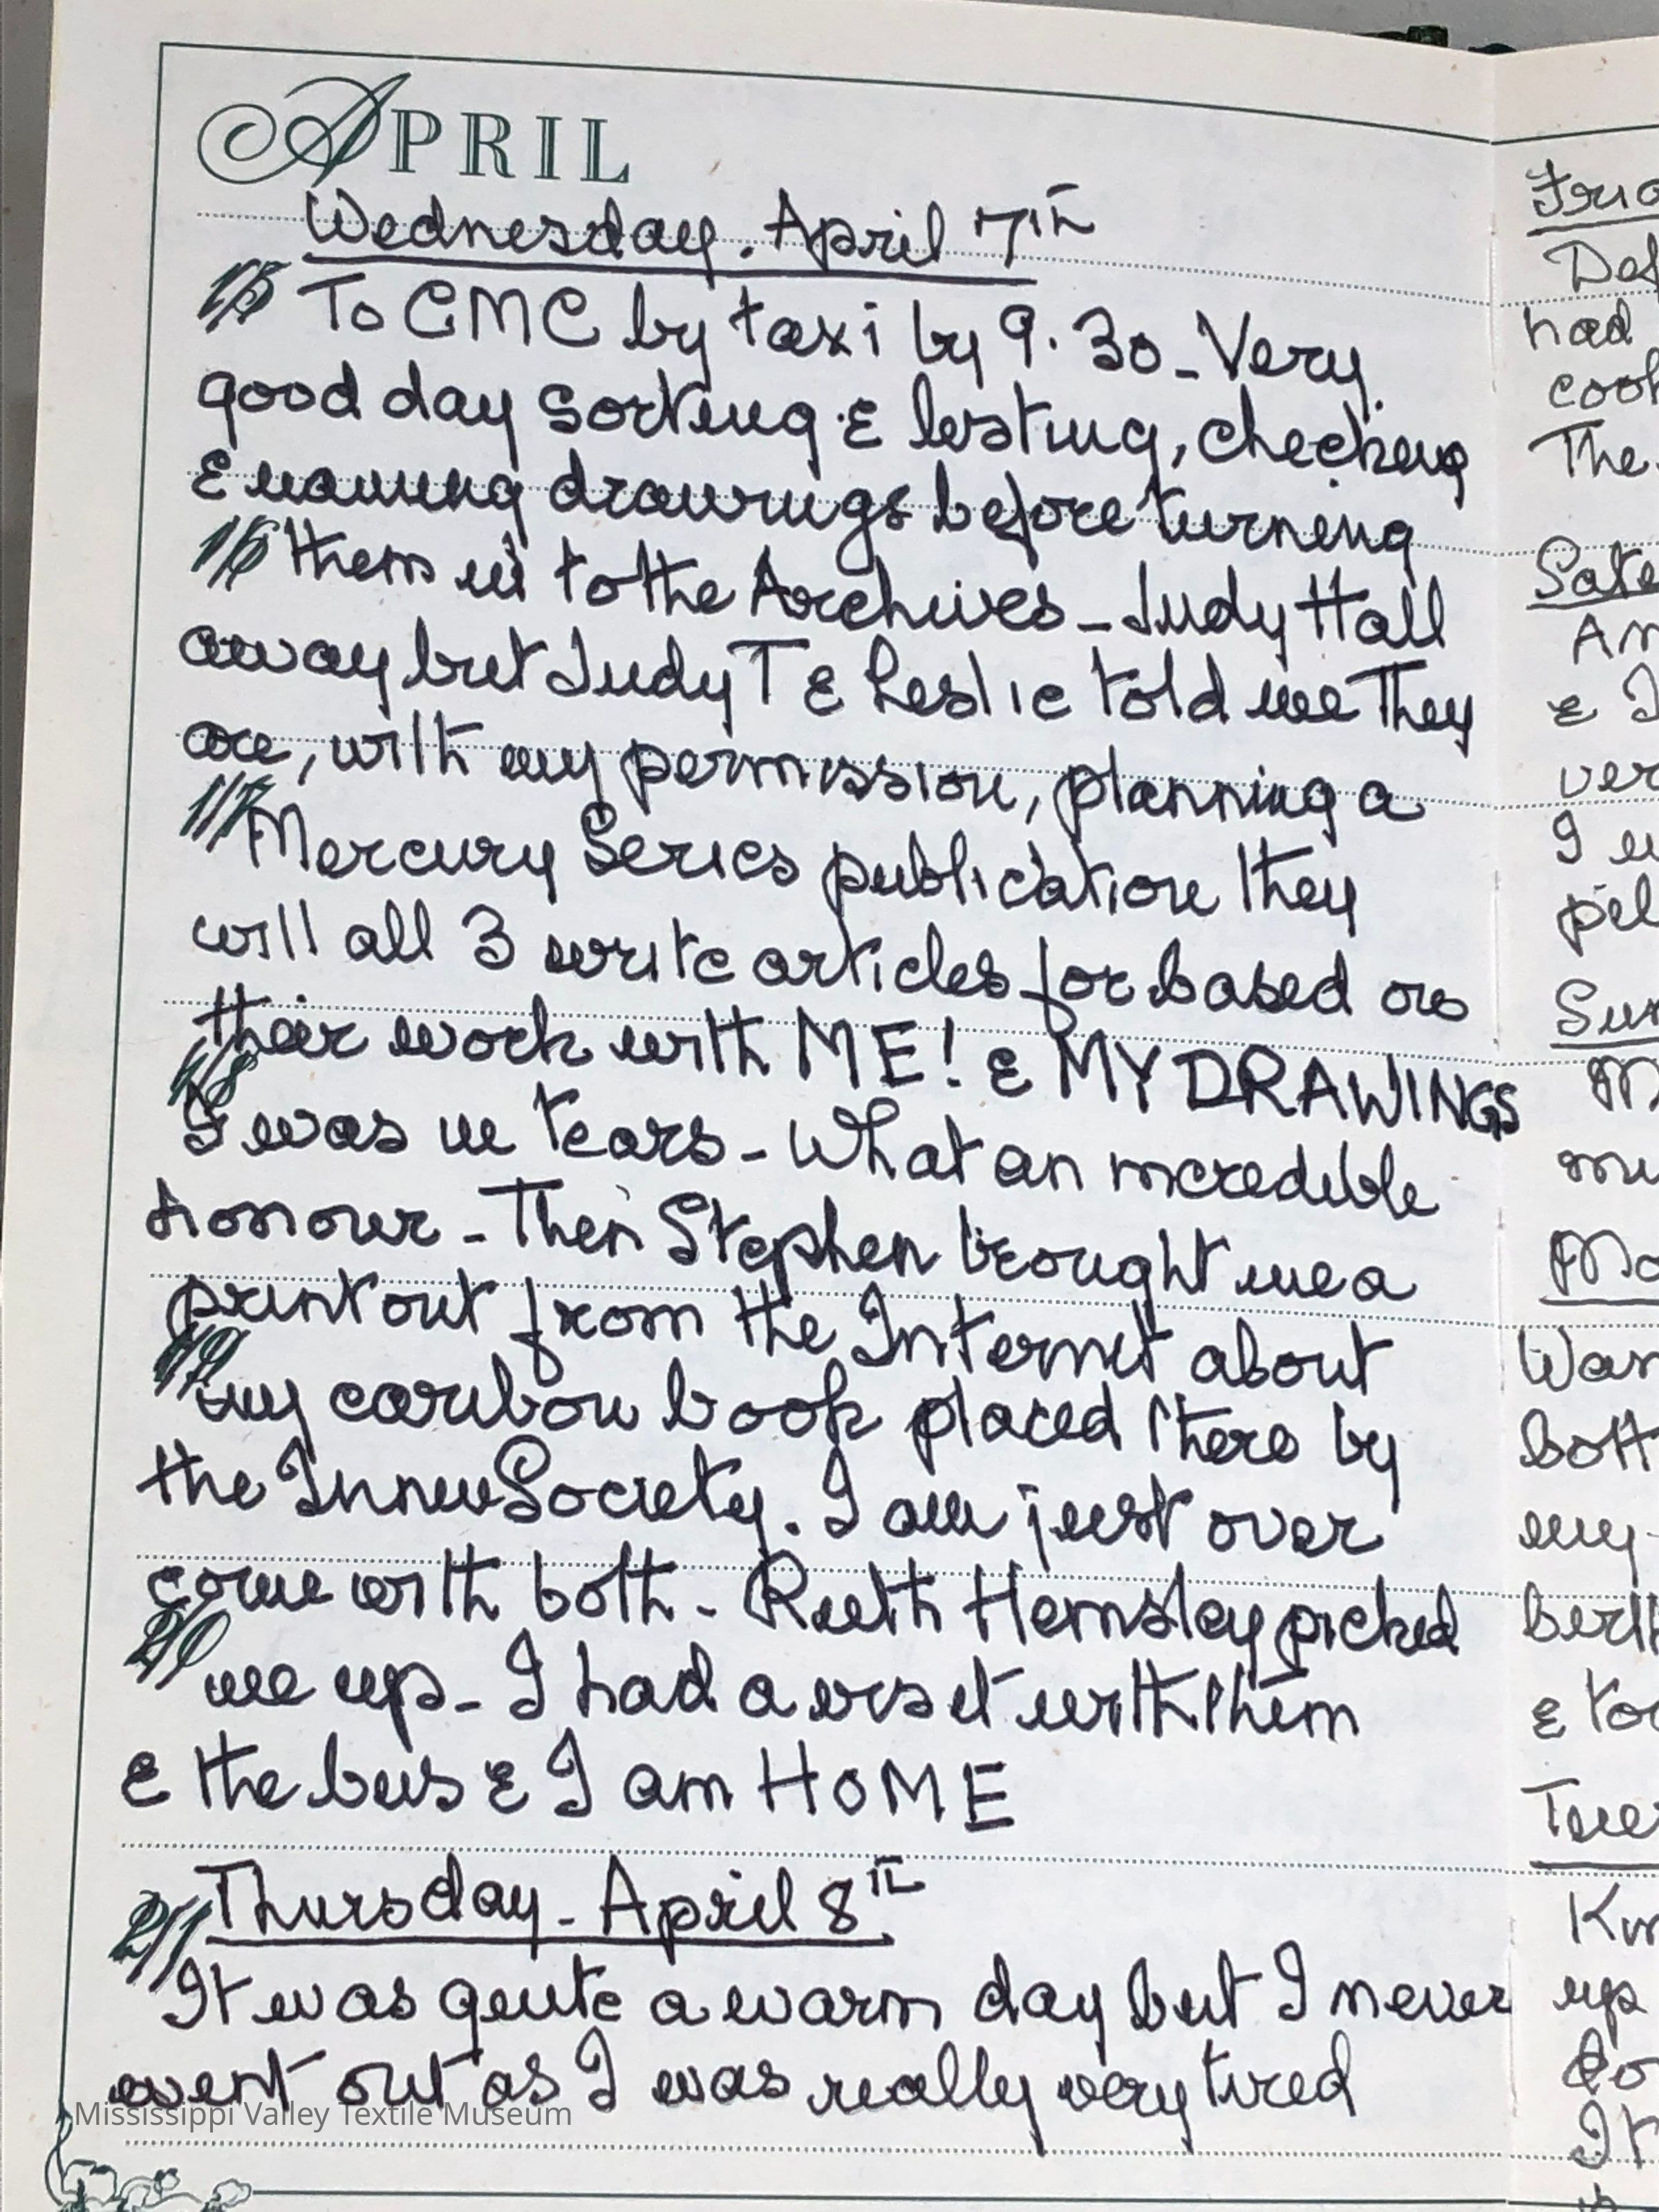 APRIL
Wednesday. April 7th
15 To CMC by taxi by 9.30 - Very
good day sorting & listing, checking
& naming drawings before turning
16 them in to the Archives - Judy Hall
away but Judy T & Leslie told me They
are, with my permission, planning a
17 Mercury Series publication they
will all 3 write articles for based on
their work with ME! & MY DRAWINGS
18 I was in tears - What an incredible
honour - Then Stephen brought me a
print out from the Internet about
19 my caribou book placed there by
the Innu Society. I am just over
come with both - Ruth Hemsley picked
20 me up - I had a visit with them
& the bus & I am HOME
21 Thursday - April 8th
It was quite a warm day but I never
went out as I was really very tired
Mississippi Valley Textile Museum
had
The
& I